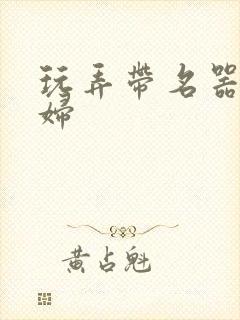 玩弄带名器
婦
黄占魁